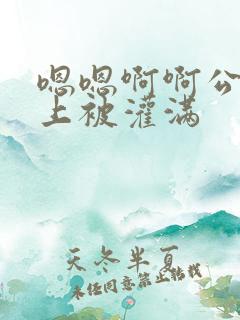 嗯嗯啊啊公
上被灌满
天冬半夏
未经同意禁止转载